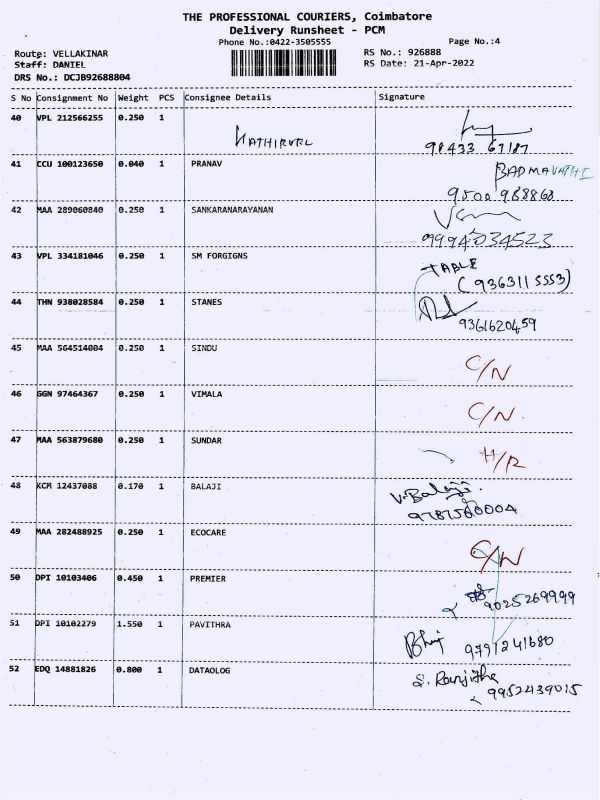 THE PROFESSIONAL COURIERS, Coimbatore
Delivery Runsheet - PCM
Phone No.:0422-3505555 Page No.:4
Route: VELLAKINAR RS No.: 926888
Staff: DANIEL RS Date: 21-Apr-2022
DRS No.: DCJB92688804
S No Consignment No Weight PCS Consignee Details Signature
40 VPL 212566255 0.250 1
KATHIRVEL 98433 67187
41 CCU 100123650 0.040 1 PRANAV
BADMAVATHI
9500 988868
42 MAA 289060840 0.250 1 SANKARANARAYANAN
9994034523
43 VPL 334181046 0.250 1 SM FORGIGNS
TABLE
(9363115553)
44 THN 938028584 0.250 1 STANES
9361620459
45 MAA 564514004 0.250 1 SINDU
C/N
46 GGN 97464367 0.250 1 VIMALA
C/N
47 MAA 563879680 0.250 1 SUNDAR
H/R
48 KCM 12437088 0.170 1 BALAJI
V. Balaji.
49 MAA 282488925 0.250 1 ECOCARE
C/N
50 DPI 10103406 0.450 1 PREMIER
9025269999
51 DPI 10102279 1.550 1 PAVITHRA
9791241680
52 EDQ 14881826 0.800 1 DATAOLOG
S. Ranjitha
9952439015